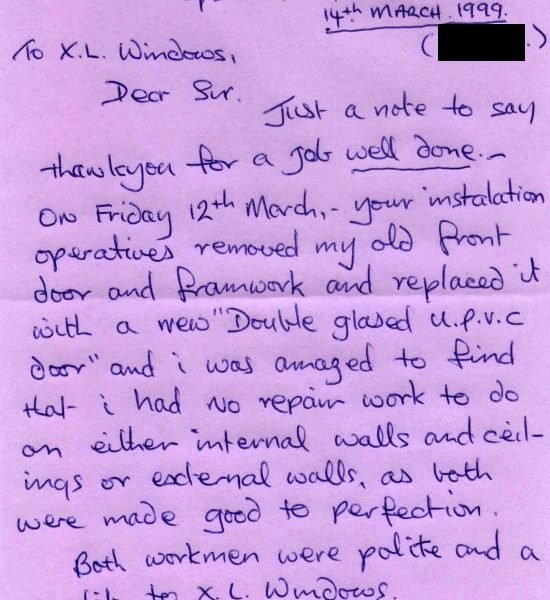 14th MARCH. 1999.
( .)
To X.L. Windows,
Dear Sir.
Just a note to say
thankyou for a job well done.-
On Friday 12th March,- your instalation
operatives removed my old front
door and framwork and replaced it
with a new "Double glased u.p.v.c
door" and i was amazed to find
that i had no repair work to do
on either internal walls and ceil-
ings or external walls, as both
were made good to perfection.
Both workmen were polite and a
to X.L. Windows.